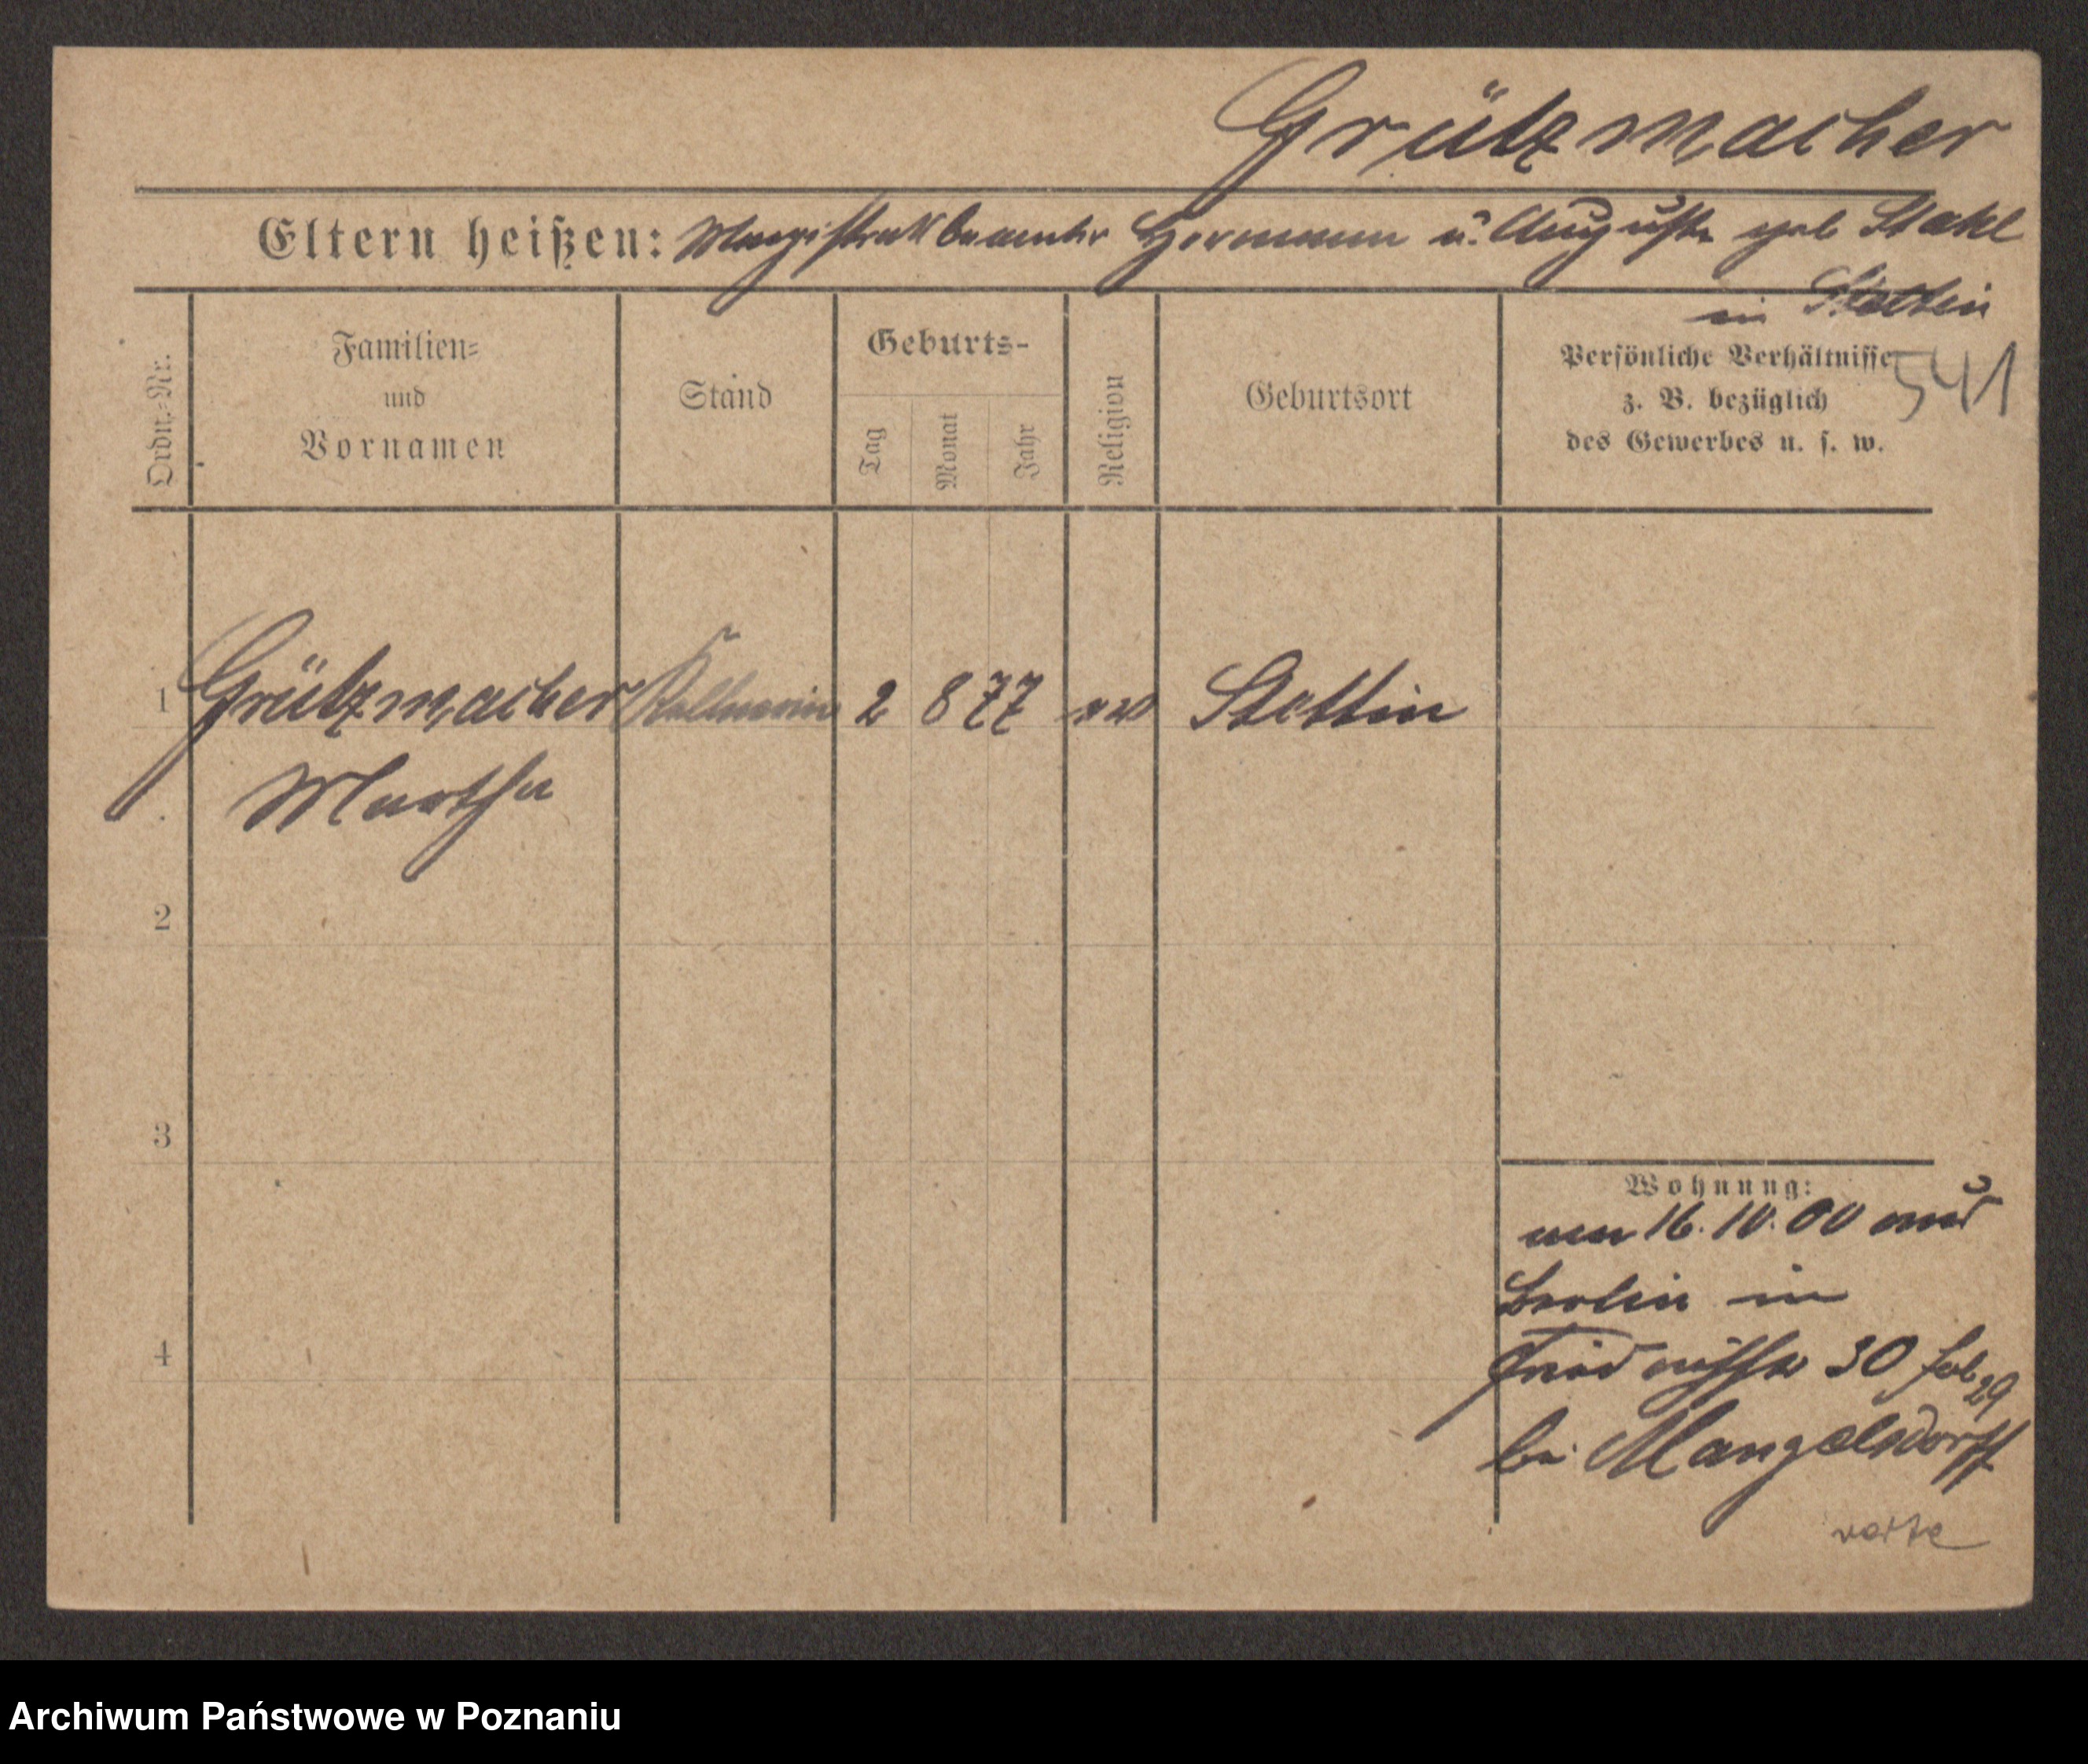 Grützmacher
Eltern heißen: Magistratsbeamter Hermann u. Auguste geb Stahl
in Stettin
541
Ordn.=Nr.
Familien=
und
Vornamen
Stand
Geburts-
Tag
Monat
Jahr
Religion
Geburtsort
Persönliche Verhältnisse
z. B. bezüglich
des Gewerbes u. s. w.
1 Grützmacher Kellnerin 2 8 77 Stettin
Martha
2
3
4
Wohnung:
am 16. 10. 00 aus
Berlin in
30
bei Mangelsdorff
Archiwum Państwowe w Poznaniu